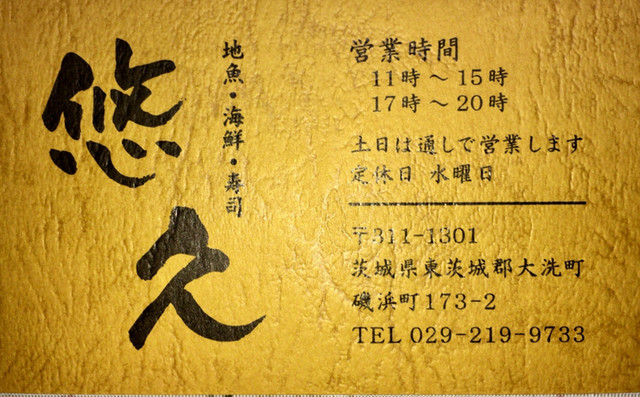 悠久
地魚・海鮮・寿司
営業時間
11時～15時
17時～20時
土日は通しで営業します
定休日 水曜日
〒311-1301
茨城県東茨城郡大洗町
磯浜町173-2
TEL 029-219-9733